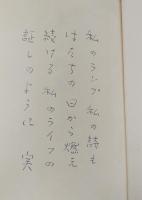 私のランプ 私の詩も
はたちの日から燃え
続ける 私のライフの
証しのように 実